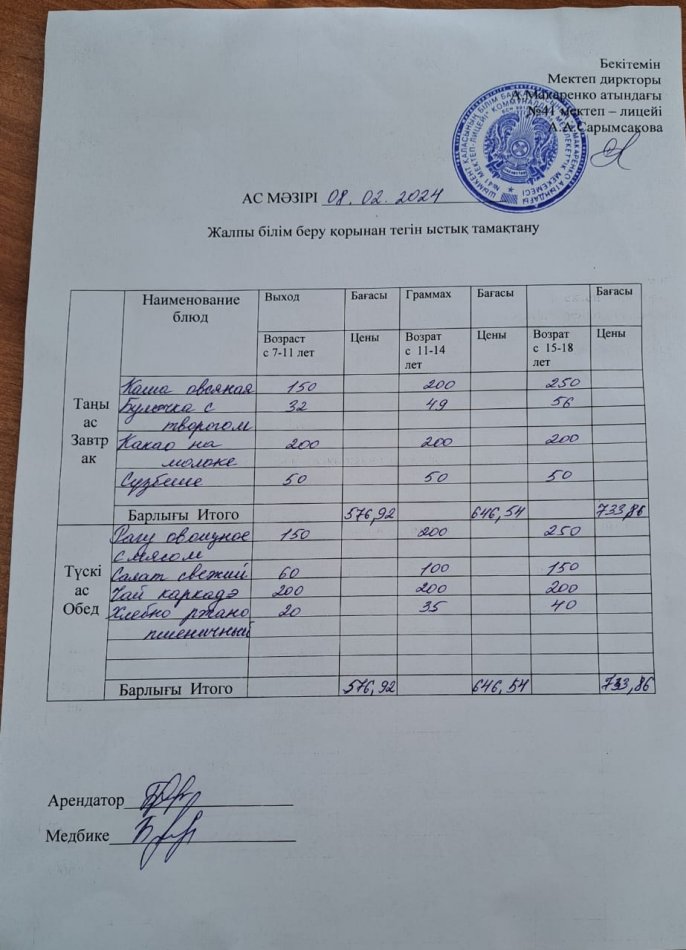 Бекітемін
Мектеп диркторы
А.Макаренко атындағы
№41 мектеп – лицейі
А.А.Сарымсақова
АС МӘЗІРІ 08. 02. 2024
Жалпы білім беру қорынан тегін ыстық тамақтану
Наименование блюд Выход Бағасы Граммах Бағасы Бағасы
Возраст с 7-11 лет Цены Возрат с 11-14 лет Цены Возрат с 15-18 лет Цены
Таңы ас Завтр ак
Каша овсяная 150 200 250
Булочка с 32 49 56
творогом
Какао на 200 200 200
молоке
Сүзбеше 50 50 50
Барлығы Итого 576,92 646,54 733,86
Түскі ас Обед
Рагу овощное 150 200 250
с мясом
Салат свежий 60 100 150
Чай каркадэ 200 200 200
Хлебно ржано 20 35 40
пшеничный
Барлығы Итого 576,92 646,54 733,86
Арендатор
Медбике